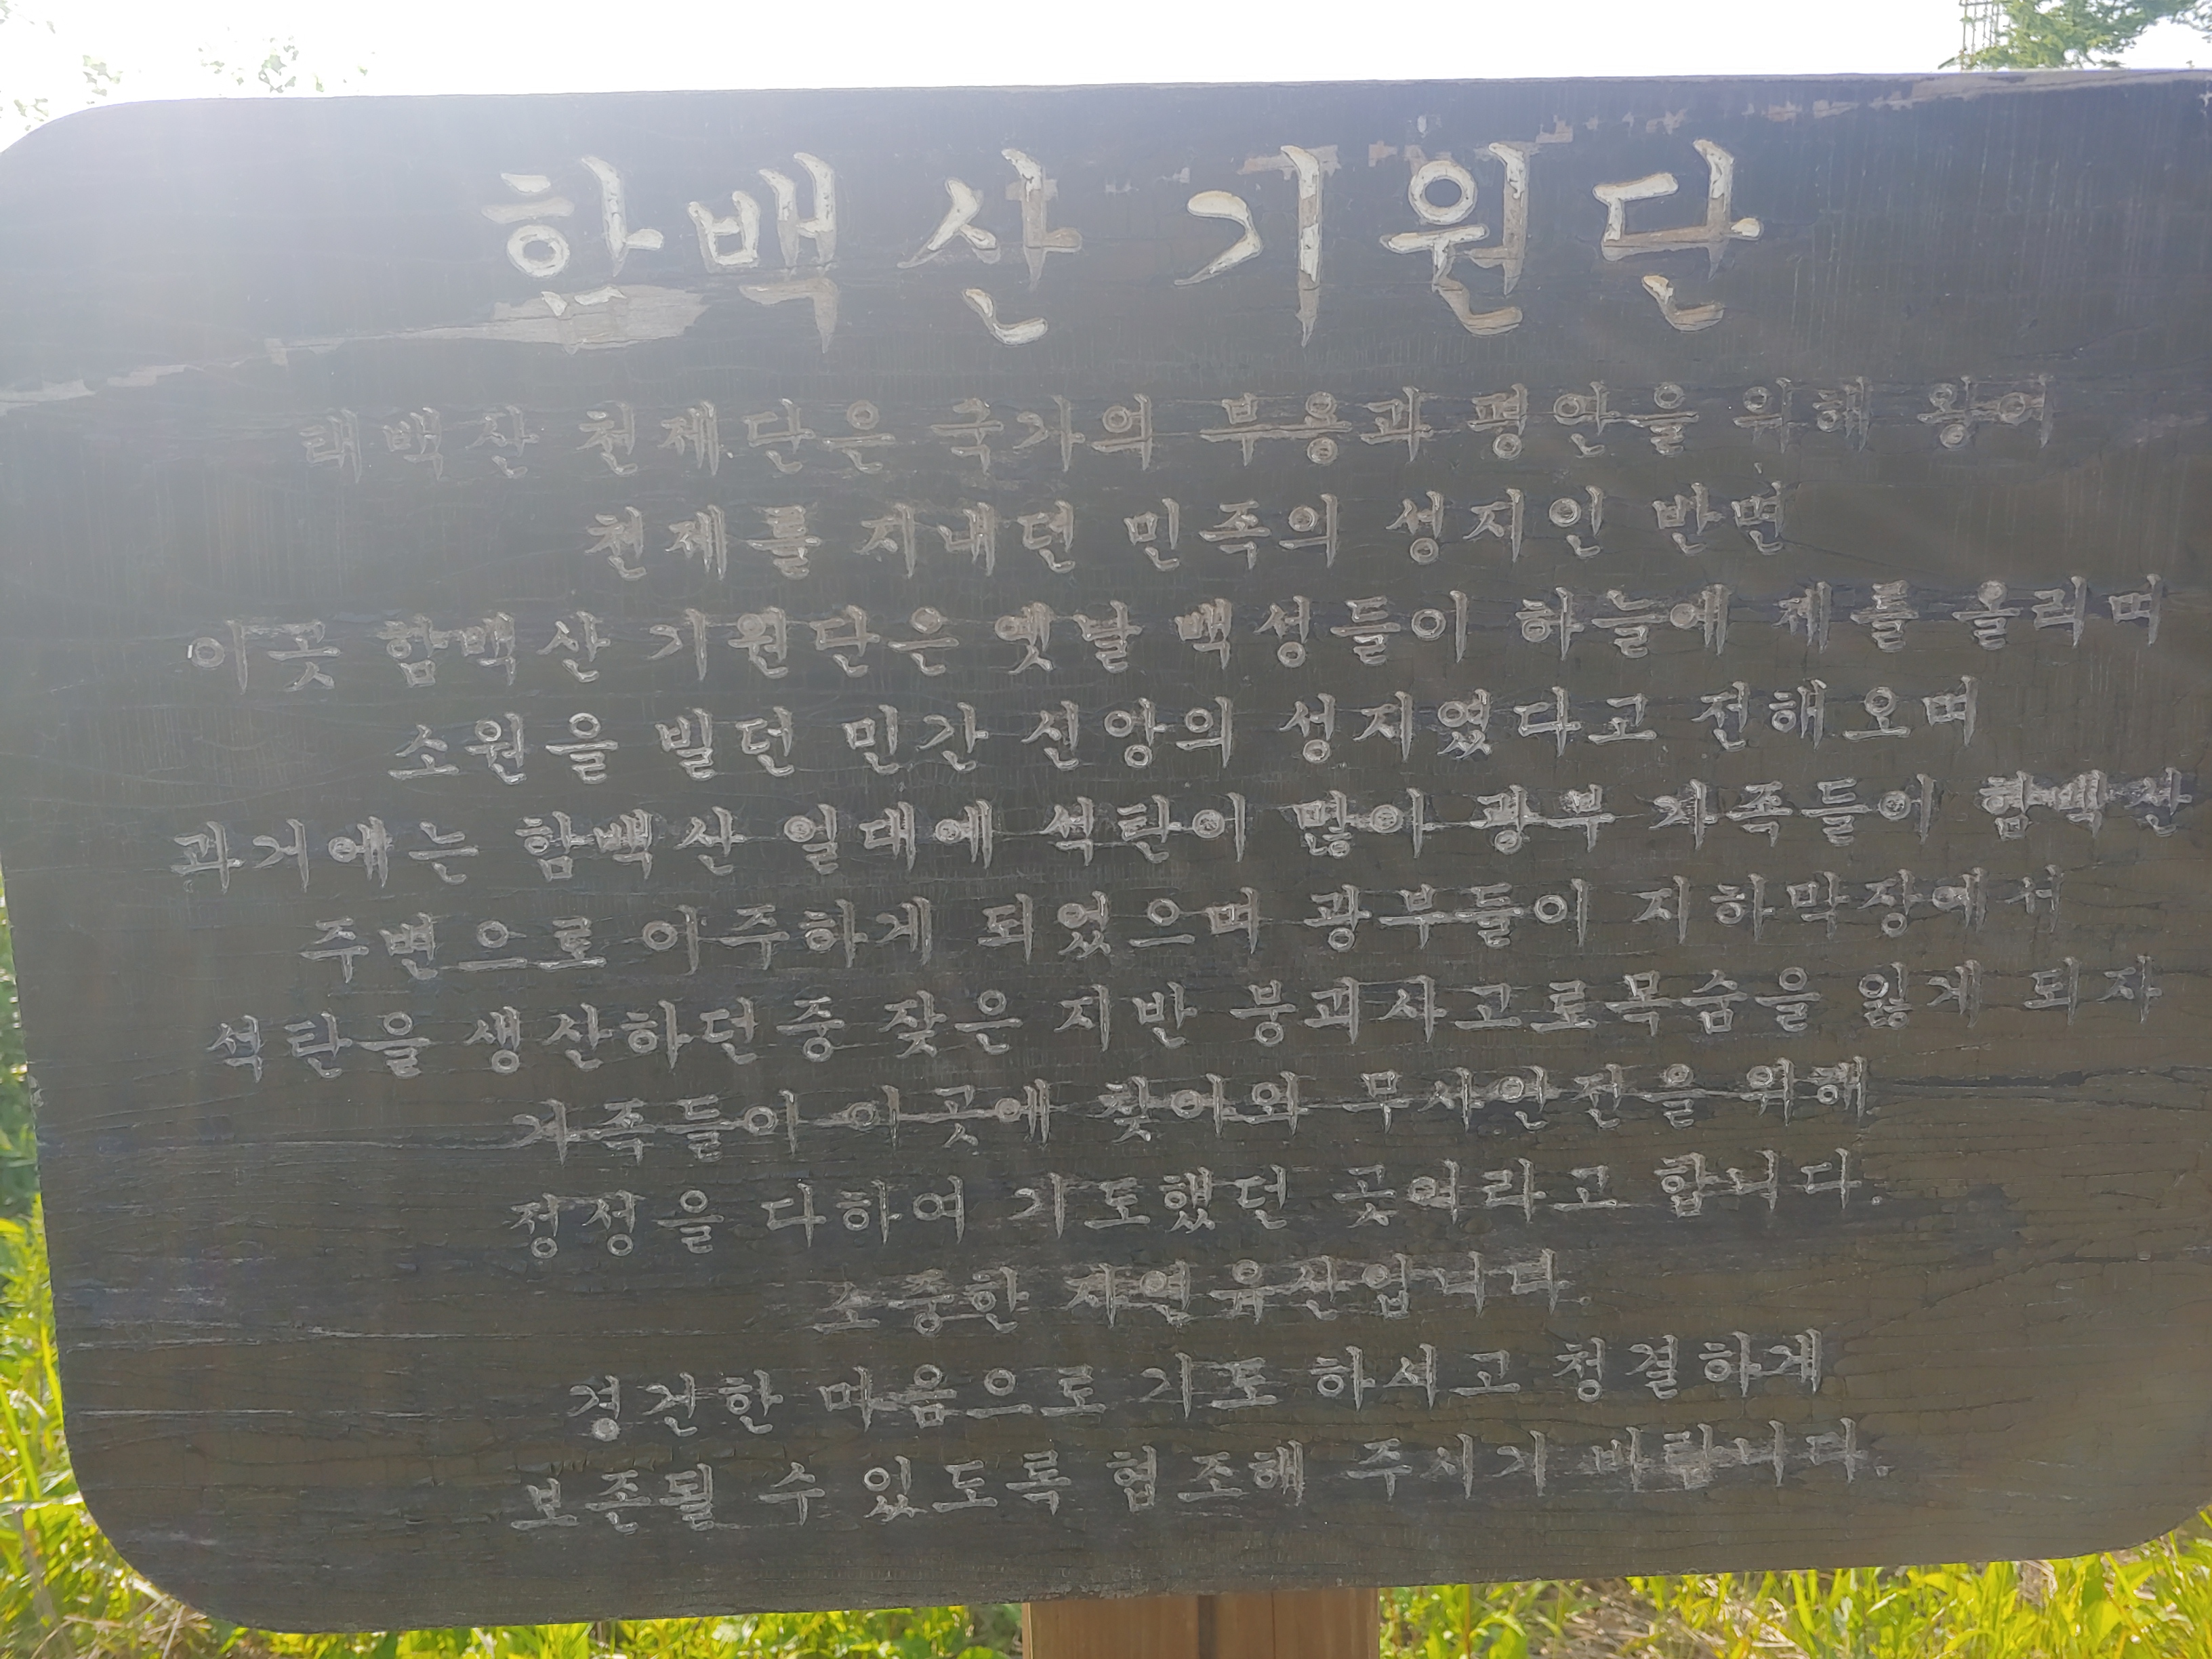 함백산 기원단
태백산 천제단은 국가의 부용과 평안을 위해 왕이
천제를 지내던 민족의 성지인 반면
이곳 함백산 기원단은 옛날 백성들이 하늘에 제를 올리며
소원을 빌던 민간 신앙의 성지였다고 전해 오며
과거에는 함백산 일대에 석탄이 많아 광부 가족들이 함백산
주변으로 이주하게 되었으며 광부들이 지하막장에서
석탄을 생산하던중 잦은 지반 붕괴사고로목숨을 잃게 되자
가족들이 이곳에 찾아와 무사안전을 위해
정성을 다하여 기도했던 곳이라고 합니다.
소중한 자연유산입니다
경건한 마음으로 기도 하시고 청결하게
보존될 수 있도록 협조해 주시기 바랍니다.